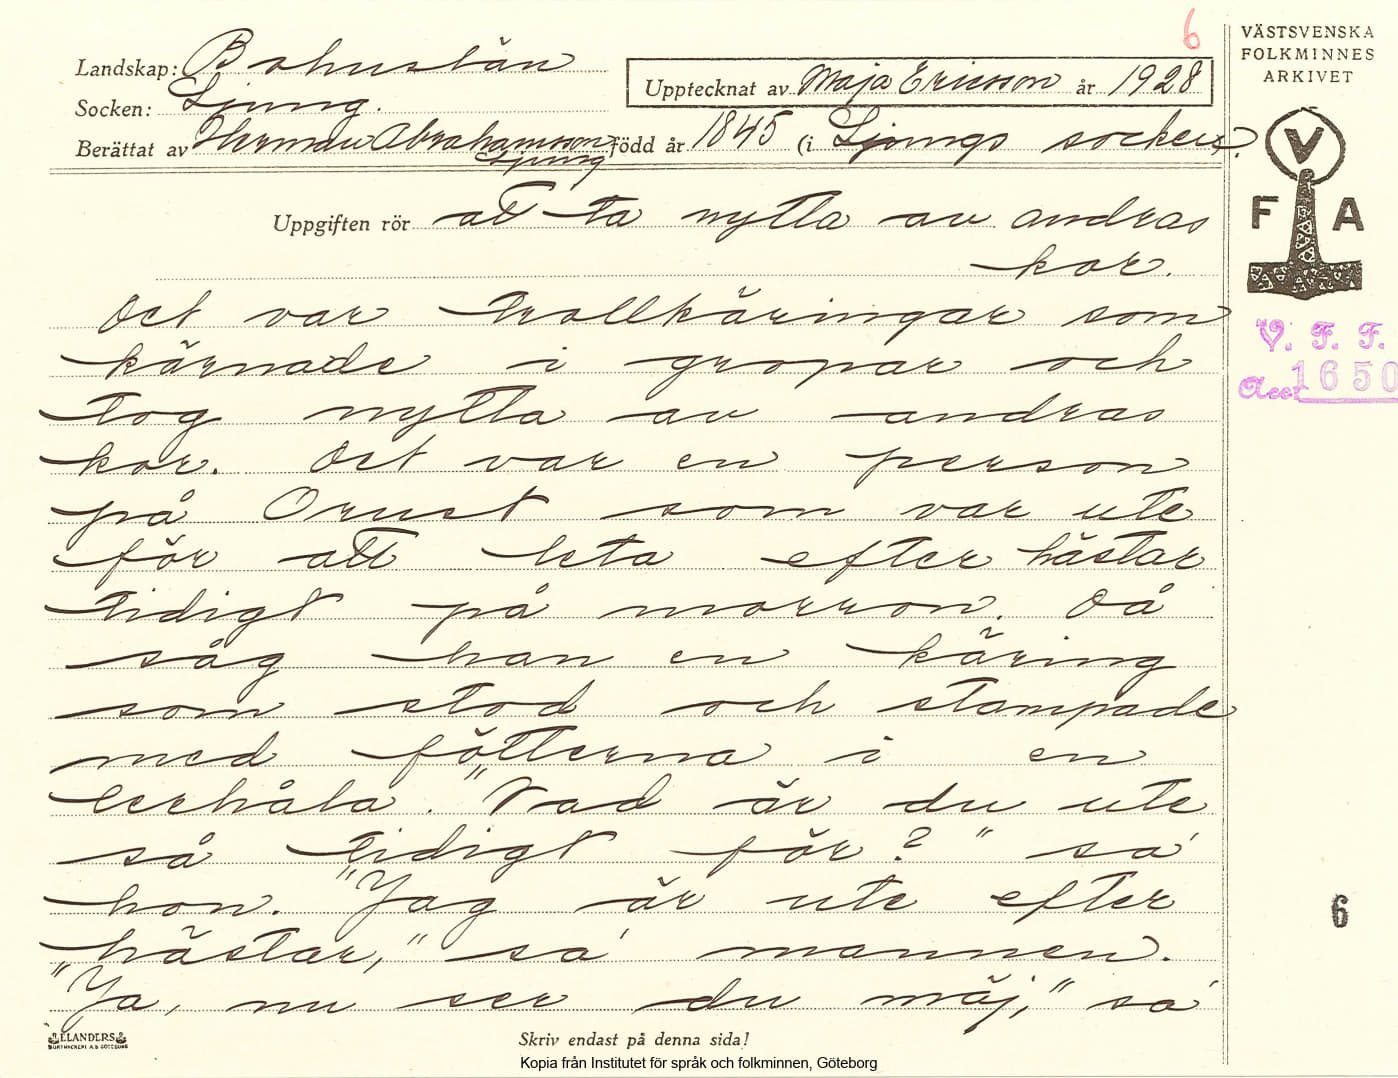 6
VÄSTSVENSKA
FOLKMINNES
ARKIVET
Landskap: Bohuslän
Upptecknat av Maja Ericsson år 1928
Socken: Ljung.
Berättat av Herman Abrahamsson född år 1845 (i Ljungs socken.
Ljung
V
F A
Uppgiften rör att ta nytta av andras
kor.
Det var trollkäringar som
kärnade i gropar och
tog nytta av andras
kor. Det var en person
på Orust som var ute
för att leta efter hästar
tidigt på morron. Då
såg han en käring
som stod och stampade
med fötterna i en
lerhåla. "Vad är du ute
så tidigt för?" sa'
hon. "Jag är ute efter
hästar," sa' mannen.
"Ja, nu ser du mäj," sa'
V. F. F.
Acc: 1650
6
ELANDERS
BOKTRYCKERI A.B. GÖTEBORG
Skriv endast på denna sida!
Kopia från Institutet för språk och folkminnen, Göteborg